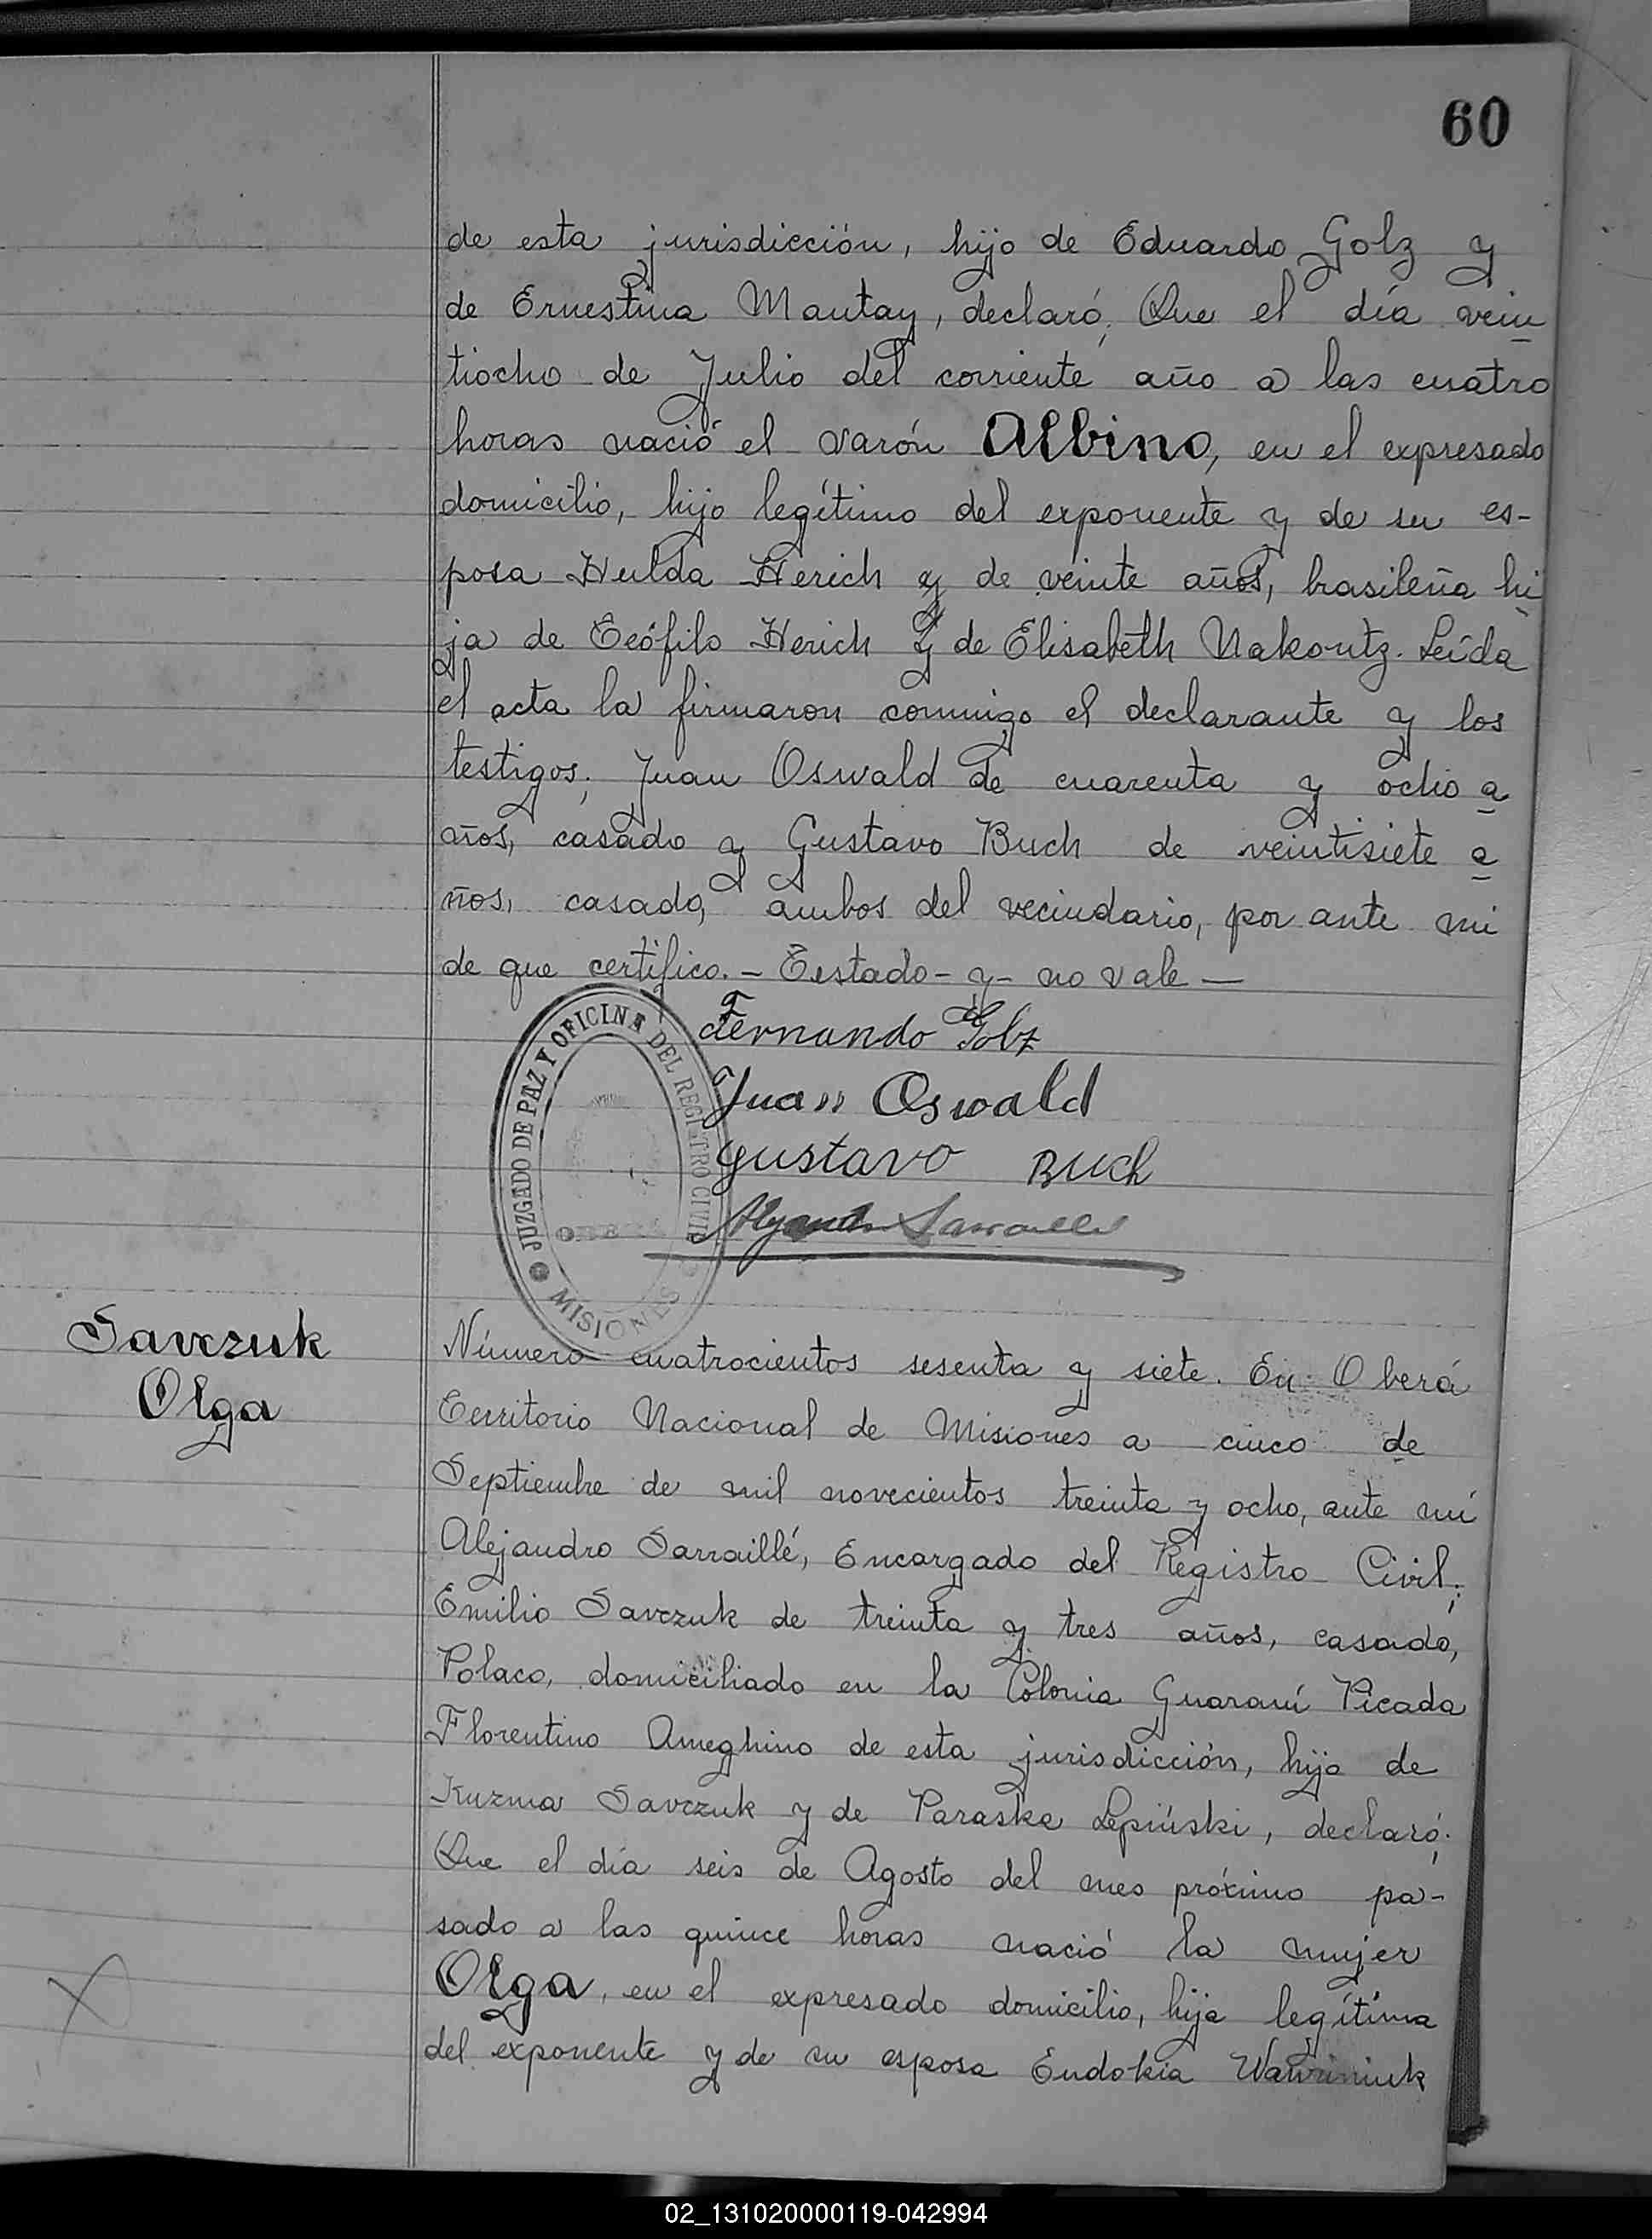 60
de esta jurisdicción, hijo de Eduardo Golz y
de Ernestina Mantay, declaró; Que el día vein
tiocho de Julio del corriente año a las cuatro
horas nació el varón Albino, en el expresado
domicilio, hijo legítimo del exponente y de su es-
posa Hulda Herich y de veinte años, brasileña hi
ja de Teófilo Herich y de Elisabeth Nakontz. Leída
el acta la firmaron conmigo el declarante y los
testigos; Juan Oswald de cuarenta y ocho a
años, casado y Gustavo Buch de veintisiete a
ños, casado, ambos del vecindario, por ante mi
de que certifico.- Testado- y- no vale-
Fernando Golz
Juan Oswald
Gustavo Buch
Alejandro Sarraillé
JUZGADO DE PAZ Y OFICINA DEL REGISTRO CIVIL
OBERA
MISIONES
Savczuk
Olga
Número cuatrocientos sesenta y siete. En Oberá
Territorio Nacional de Misiones a cinco de
Septiembre de mil novecientos treinta y ocho, ante mí
Alejandro Sarraillé, Encargado del Registro Civil;
Emilio Savczuk de treinta y tres años, casado,
Polaco, domiciliado en la Colonia Guaraní Picada
Florentino Ameghino de esta jurisdicción, hijo de
Kuzma Savczuk y de Paraske Lepiński, declaró;
Que el día seis de Agosto del mes próximo pa-
sado a las quince horas nació la mujer
Olga, en el expresado domicilio, hija legítima
del exponente y de su esposa Eudokia Wawriniuk
02_131020000119-042994